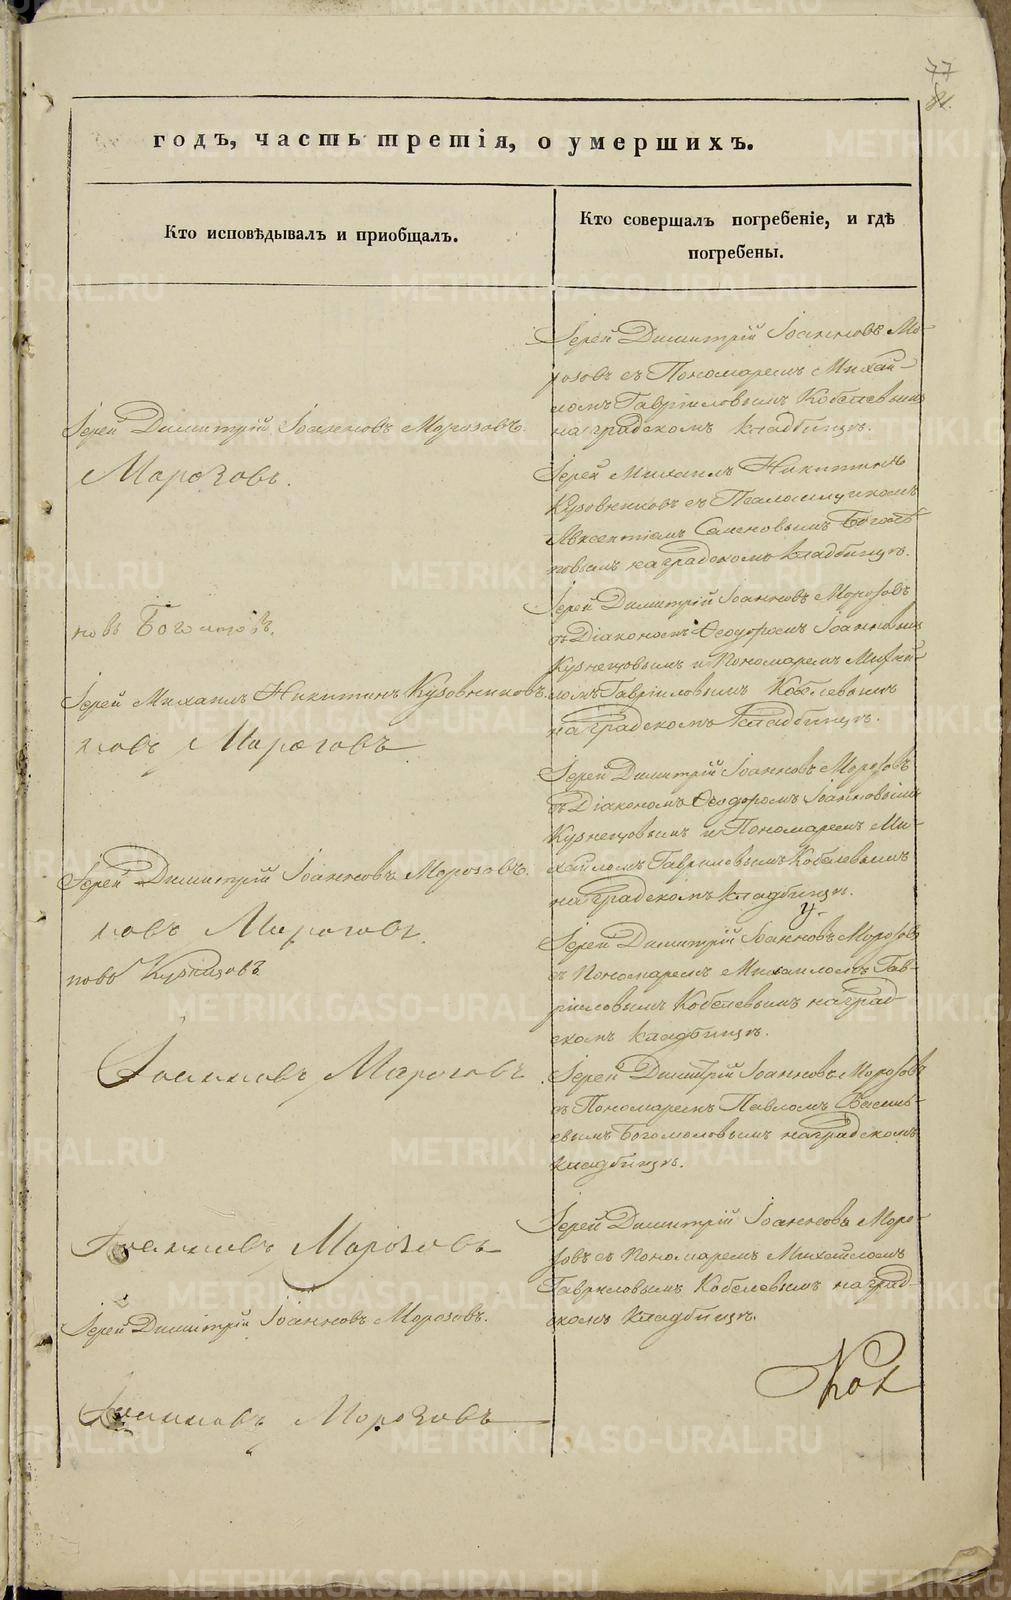 77
годъ, часть третія, о умершихъ.
Кто исповѣдывалъ и приобщалъ.
Іерей Димитрій Іоанновъ Морозовъ.
Морозовъ.
новъ
Іерей Михаилъ Никитинъ Кузовниковъ.
новъ Морозовъ
Іерей Димитрій Іоанновъ Морозовъ.
новъ Морозовъ
новъ Кузнецовъ
Іоанновъ Морозовъ
Іоанновъ Морозовъ
Іерей Димитрій Іоанновъ Морозовъ.
Іоанновъ Морозовъ
Кто совершалъ погребеніе, и гдѣ
погребены.
Іерей Димитрій Іоанновъ Мо-
розовъ съ Пономаремъ Михай-
ломъ Гавріиловымъ Кобелевымъ
на градскомъ кладбищѣ.
Іерей Михаилъ Никитинъ
Кузовниковъ съ Псаломщикомъ
Авксентіемъ Семеновымъ
на градскомъ кладбищѣ.
Іерей Димитрій Іоанновъ Морозовъ
съ Діакономъ Ѳеодоромъ Іоанновымъ
Кузнецовымъ и Пономаремъ Михай-
ломъ Гавріиловымъ Кобелевымъ
на градскомъ кладбищѣ.
Іерей Димитрій Іоанновъ Морозовъ
съ Діакономъ Ѳеодоромъ Іоанновымъ
Кузнецовымъ и Пономаремъ Ми-
хайломъ Гавриловымъ Кобелевымъ
на градскомъ кладбищѣ.
Іерей Димитрій Іоанновъ Морозовъ
съ Пономаремъ Михаиломъ Гав-
ріиловымъ Кобелевымъ на град-
скомъ кладбищѣ.
Іерей Димитрій Іоанновъ Морозовъ
съ Пономаремъ Павломъ Василь-
евымъ Богомоловымъ на градскомъ
кладбищѣ.
Іерей Димитрій Іоанновъ Моро-
зовъ съ Пономаремъ Михайломъ
Гавриловымъ Кобелевымъ на град-
скомъ кладбищѣ.
METRIKI.GASO-URAL.RU